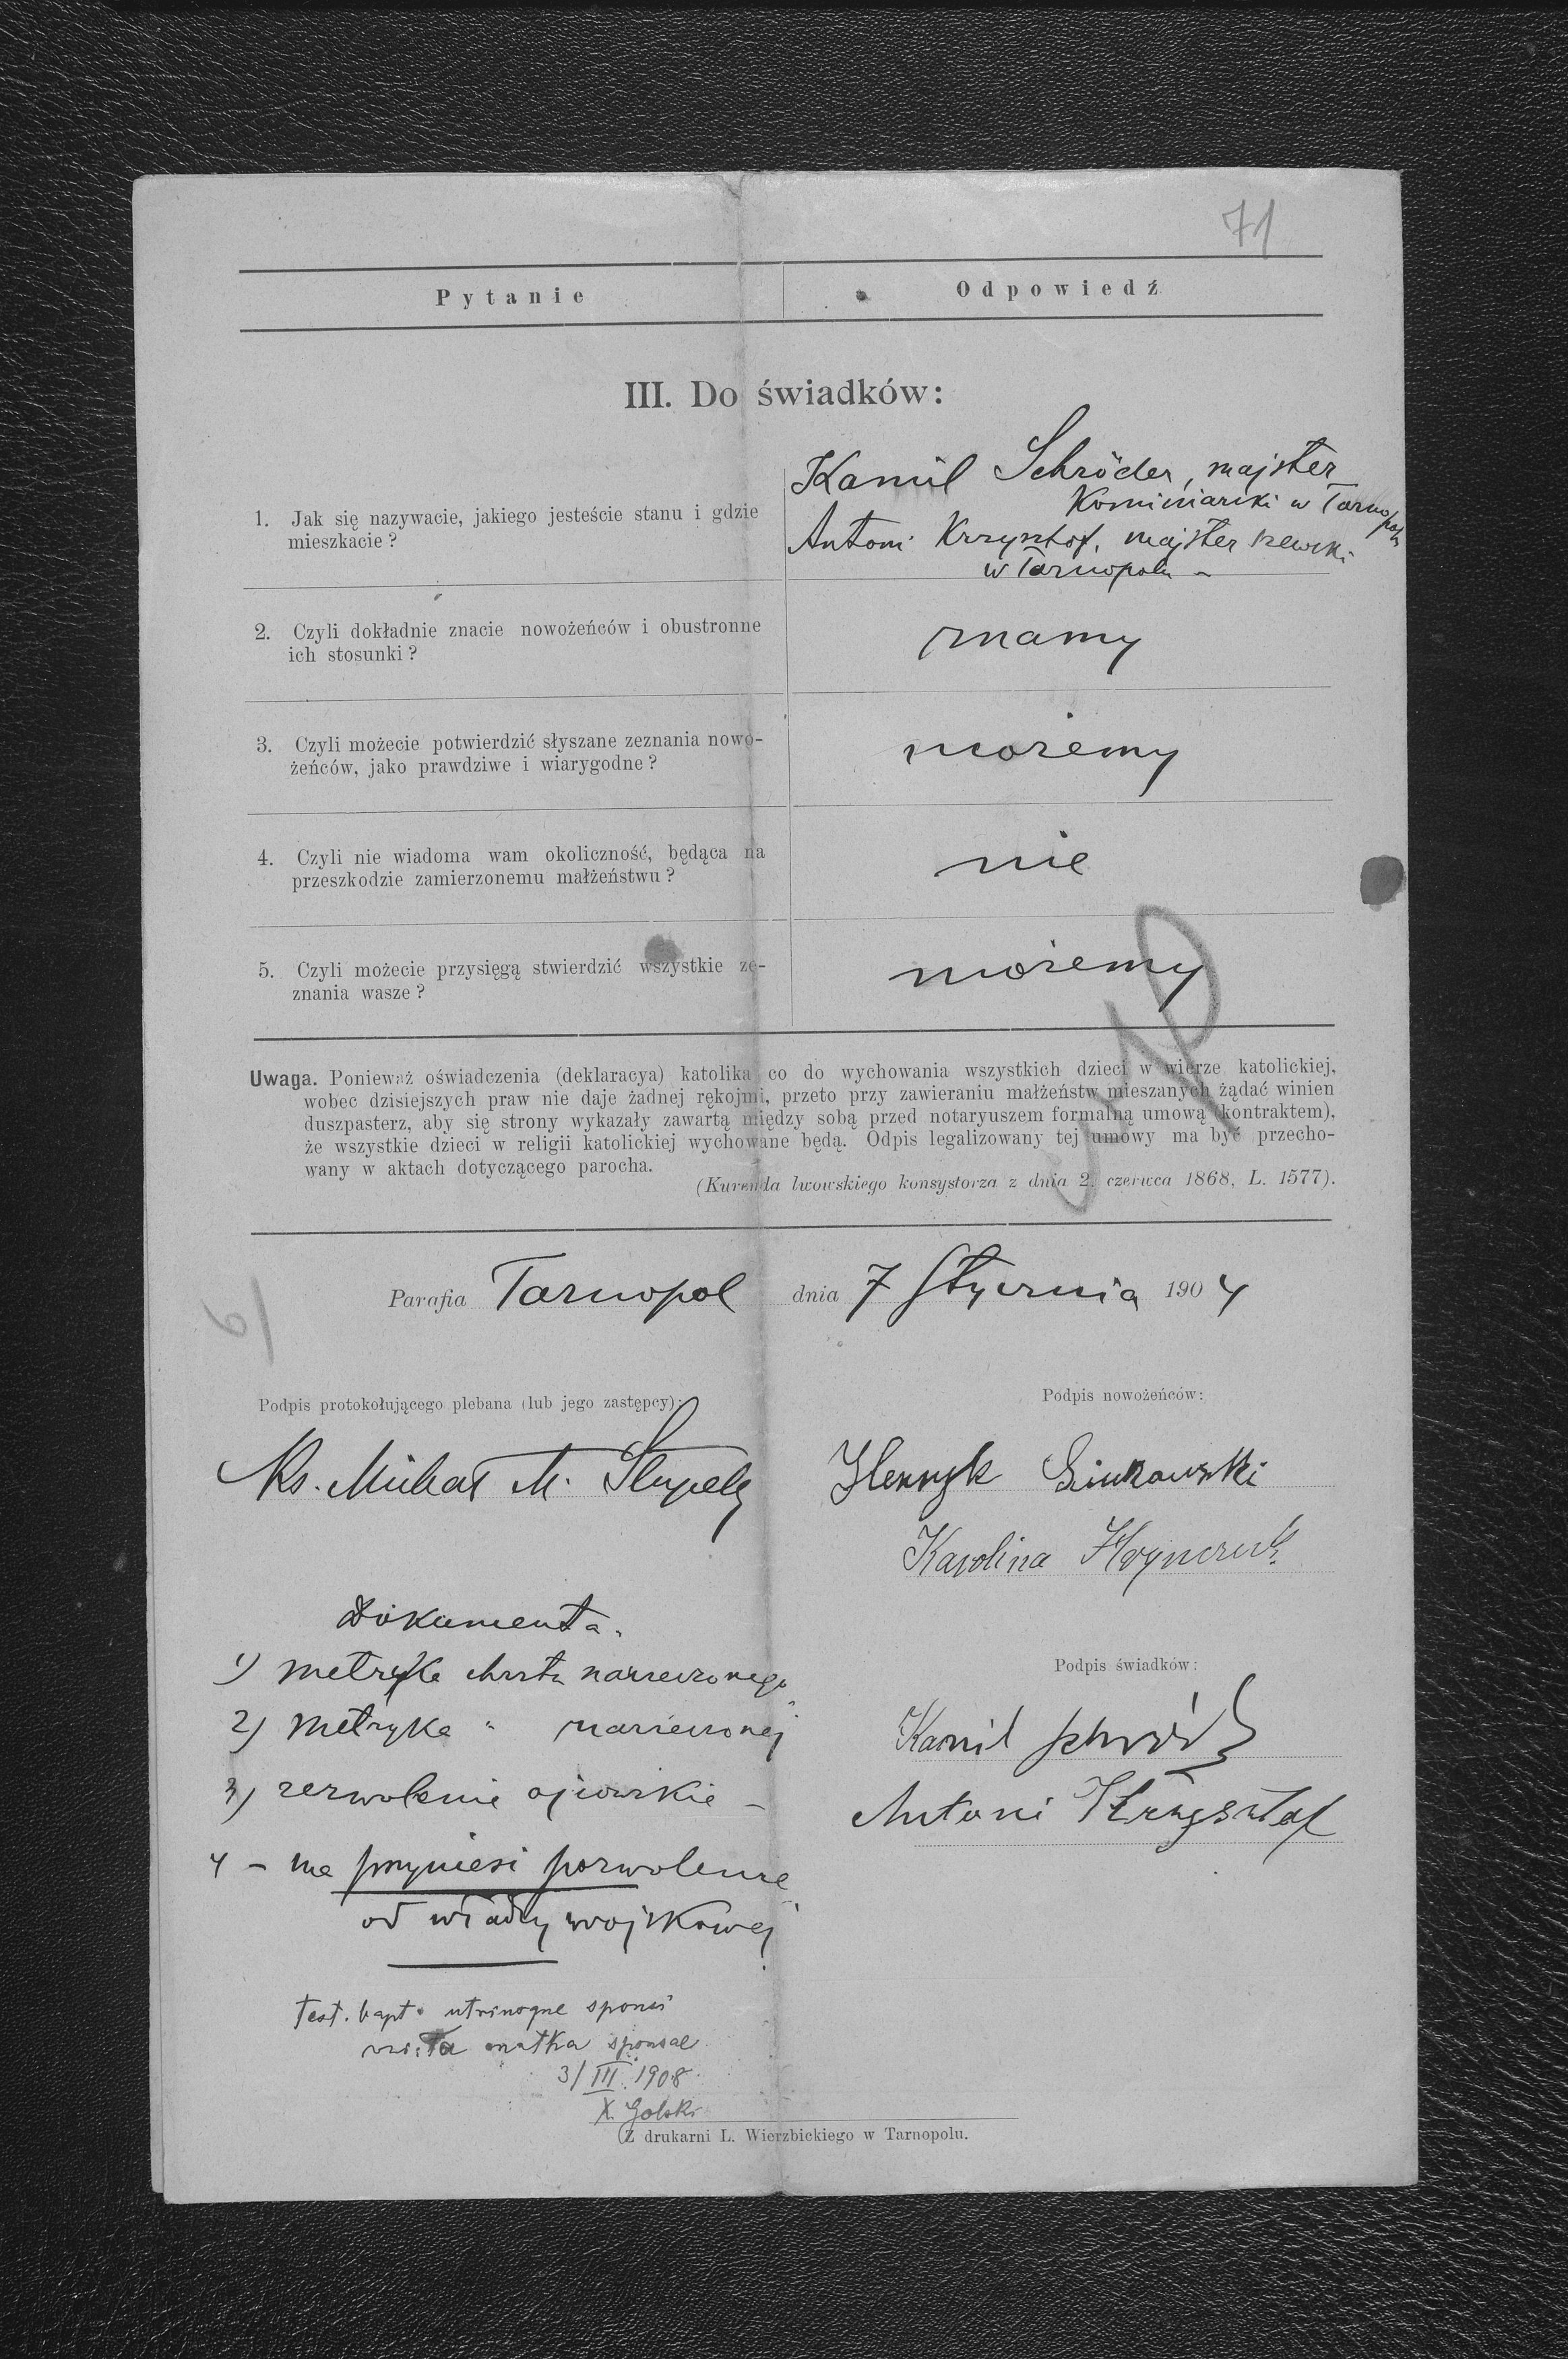 71
Pytanie
Odpowiedź
III. Do świadków:
1. Jak się nazywacie, jakiego jesteście stanu i gdzie
mieszkacie?
Kamil Schröder, majster
Kominiarski w Tarnopolu
Antoni Krzysztof, majster szewski
w Tarnopolu –
2. Czyli dokładnie znacie nowożeńców i obustronne
ich stosunki?
znamy
3. Czyli możecie potwierdzić słyszane zeznania nowo-
żeńców, jako prawdziwe i wiarygodne?
możemy
4. Czyli nie wiadoma wam okoliczność, będąca na
przeszkodzie zamierzonemu małżeństwu?
nie
5. Czyli możecie przysięgą stwierdzić wszystkie ze-
znania wasze?
możemy
Uwaga. Ponieważ oświadczenia (deklaracya) katolika co do wychowania wszystkich dzieci w wierze katolickiej,
wobec dzisiejszych praw nie daje żadnej rękojmi, przeto przy zawieraniu małżeństw mieszanych żądać winien
duszpasterz, aby się strony wykazały zawartą między sobą przed notaryuszem formalną umową (kontraktem),
że wszystkie dzieci w religii katolickiej wychowane będą. Odpis legalizowany tej umowy ma być przecho-
wany w aktach dotyczącego parocha.
(Kurenda lwowskiego konsystorza z dnia 2. czerwca 1868, L. 1577).
Parafia Tarnopol dnia 7 Stycznia 1904
Podpis protokołującego plebana (lub jego zastępcy):
Ks. Michał M.
Podpis nowożeńców:
Henryk
Karolina
Dokumenta.
1) metryka chrztu narzeczonego
2) metryka " narzeczonej
3) zezwolenie ojcowskie –
4 – ma przynieść pozwolenie
od władzy wojskowej
Podpis świadków:
Kamil Schröder
Antoni Krzysztof
test. bapt. utriusque sponsi
wzięła matka sponsae
3/III. 1908.
X. Golski
Z drukarni L. Wierzbickiego w Tarnopolu.